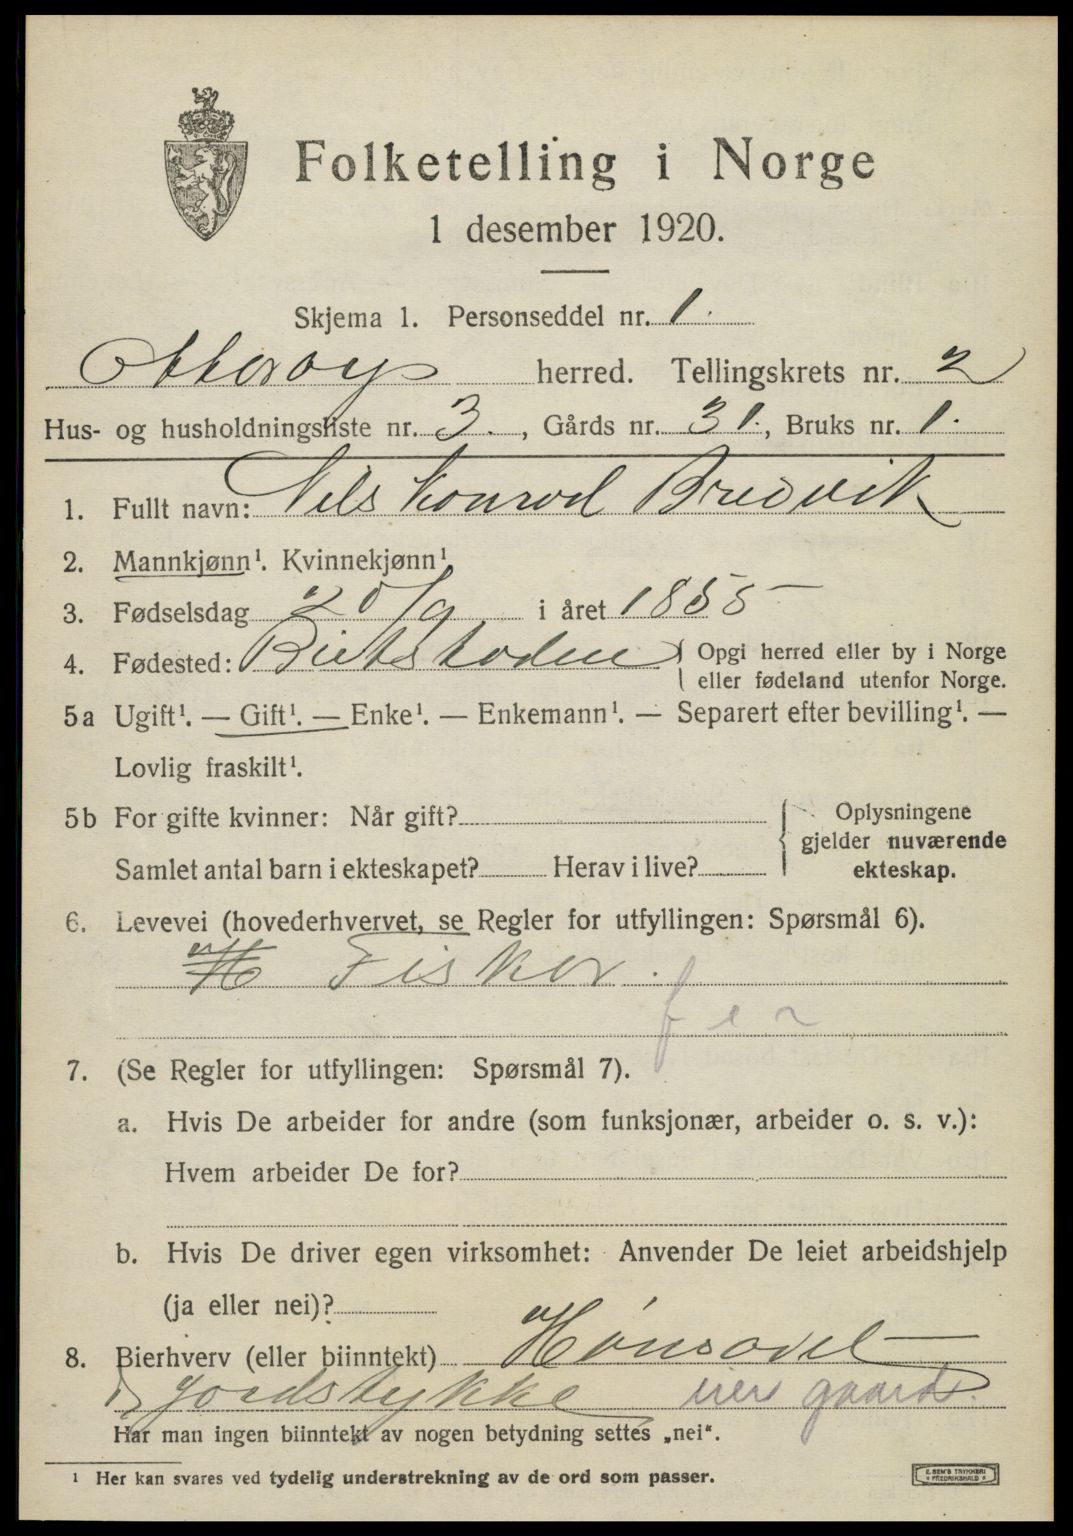 Folketelling i Norge
1 desember 1920.
Skjema 1. Personseddel nr. 1.
Otterøy herred. Tellingskrets nr. 2
Hus- og husholdningsliste nr. 3. , Gårds nr. 31., Bruks nr. 1.
1. Fullt navn: Nils Konrad Bredvik
2. Mannkjønn¹. Kvinnekjønn¹
3. Fødselsdag 20/9 i året 1855
4. Fødested: Beitstaden Opgi herred eller by i Norge
eller fødeland utenfor Norge.
5a Ugift¹. — Gift¹. — Enke¹. — Enkemann¹. — Separert efter bevilling¹. —
Lovlig fraskilt¹.
5b For gifte kvinner: Når gift?
Samlet antal barn i ekteskapet? Herav i live?
Oplysningene
gjelder nuværende
ekteskap.
6. Levevei (hovederhvervet, se Regler for utfyllingen: Spørsmål 6).
H Fisker.
7. (Se Regler for utfyllingen: Spørsmål 7).
a. Hvis De arbeider for andre (som funksjonær, arbeider o. s. v.):
Hvem arbeider De for?
b. Hvis De driver egen virksomhet: Anvender De leiet arbeidshjelp
(ja eller nei)?
8. Bierhverv (eller biinntekt)
jordstykke gaard.
Har man ingen biinntekt av nogen betydning settes „nei".
¹ Her kan svares ved tydelig understrekning av de ord som passer.
E. SEM'S TRYKKERI
FREDRIKSHALD